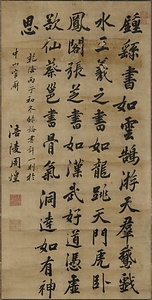 鍾繇書如雲鵠游天羣戲
水王羲之書如龍跳天門虎臥
鳳閣張芝書如漢武好道憑虛
欲仙蔡邕書骨氣洞達如有神
思
乾隆丙子初冬錄書一則於
中山
涪陵周煌